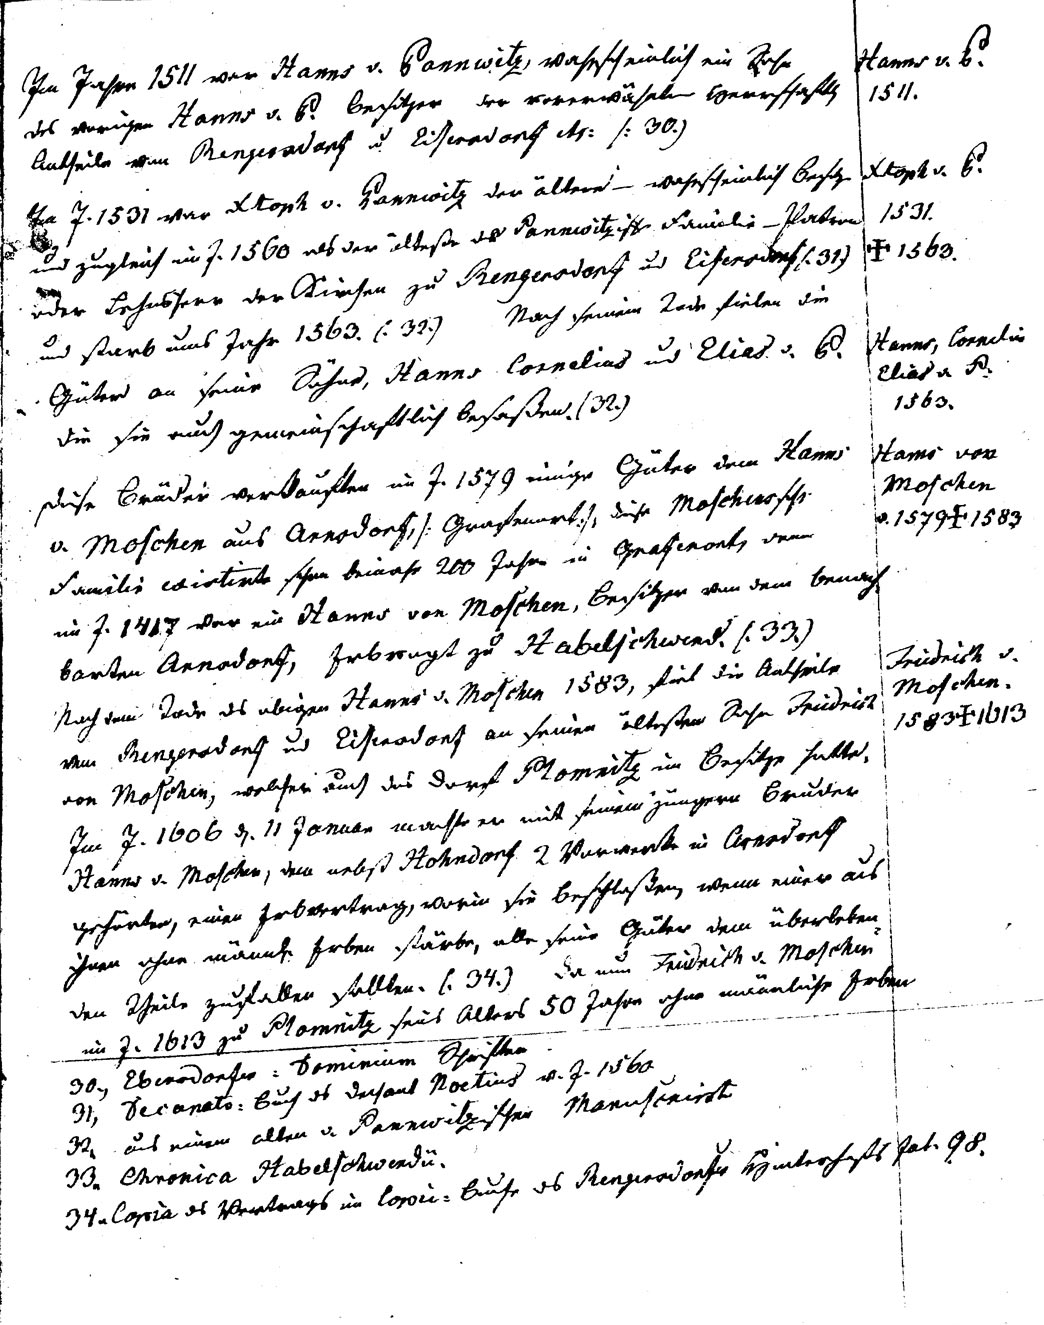 Im Jahre 1511 war Hanns v. Pannwitz, wahrscheinlich ein Sohn
des vorigen Hanns v. P. Besitzer der vorerwähnten herrschaftl.
Antheile von Rengersdorf u. Eisersdorf etc: (: 30.)
Hanns v. P.
1511.
Im J. 1531 war Xtoph v. Pannwitz der ältere – wahrscheinlich Besitzer
und zugleich im J. 1560 als der älteste der Pannwitzische Familie – Patron
oder Lehnsherr der Kirchen zu Rengersdorf und Eisersdorf (: 31.)
und starb ums Jahr 1563. (: 32.) Nach seinem Tode fielen die
Güter an seine Söhne, Hanns Cornelius und Elias v. P.
die sie auch gemeinschaftlich besaßen. (32.)
Xtoph v. P.
1531.
✝ 1563.
Hanns, Cornelius
Elias v. P.
1563.
Diese Brüder verkauften im J. 1579 einige Güter dem Hanns
v. Moschen aus Arnsdorf, (: Grafenort :), diese Moschensche
Familie existirte schon beinahe 200 Jahre in Grafenort, denn
im J. 1417 war ein Hanns von Moschen, Besitzer von dem benach-
barten Arnsdorf, Erbvogt zu Habelschwerd. (: 33.)
Hanns von
Moschen
v. 1579 ✝ 1583
Nach dem Tode des obigen Hanns v. Moschen 1583, fiel die Antheile
von Rengersdorf und Eisersdorf an seinen ältesten Sohn Friedrich
von Moschen, welcher auch das Dorf Plomnitz im Besitze hatte.
Friedrich v.
Moschen.
1583 ✝ 1613
Im J. 1606 d. 11 Januar machte er mit seinem jüngern Bruder
Hanns v. Moschen, dem nebst Hohndorf 2 Vorwerke in Arnsdorf
gehörten, einen Erbvertrag, worin sie beschloßen, wenn einer aus
ihnen ohne männl. Erben stürbe, alle seine Güter dem überleben-
den Theile zufallen sollten. (: 34.) Da nun Friedrich v. Moschen
im J. 1613 zu Plomnitz seines Alters 50 Jahre ohne männliche Erben
30., Ebersdorfer = Dominium Schriften
31, Decanats = Buch des Dechant Noetius v. J. 1560
32, aus einem alten v. Pannwitzischen Manuscript
33. Chronica Habelschwerdii.
34. Copia des Vertrags im Copie = Buche des Rengersdorfer fol. 98.